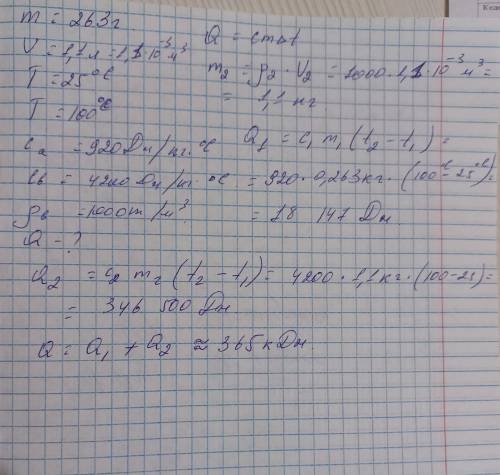 m = 263 г.
V = 1,1 л = 1,1·10⁻³ м³
T = 25°C
T = 100°C
cа = 920 Дж/кг·°C
cв = 4200 Дж/кг·°C
ρв = 1000 т/м³
Q - ?
Q = cm∆t
m₂ = ρ₂·V₂ = 1000·1,1·10⁻³ м³ =
= 1,1 кг
Q₁ = c₁ m₁ (t₂ - t₁) =
= 920·0,263 кг·(100°C - 25°C) =
= 18 147 Дж
Q₂ = c₂ m₂ (t₂ - t₁) = 4200·1,1 кг·(100-25) =
= 346 500 Дж
Q = Q₁ + Q₂ ≈ 365 кДж.